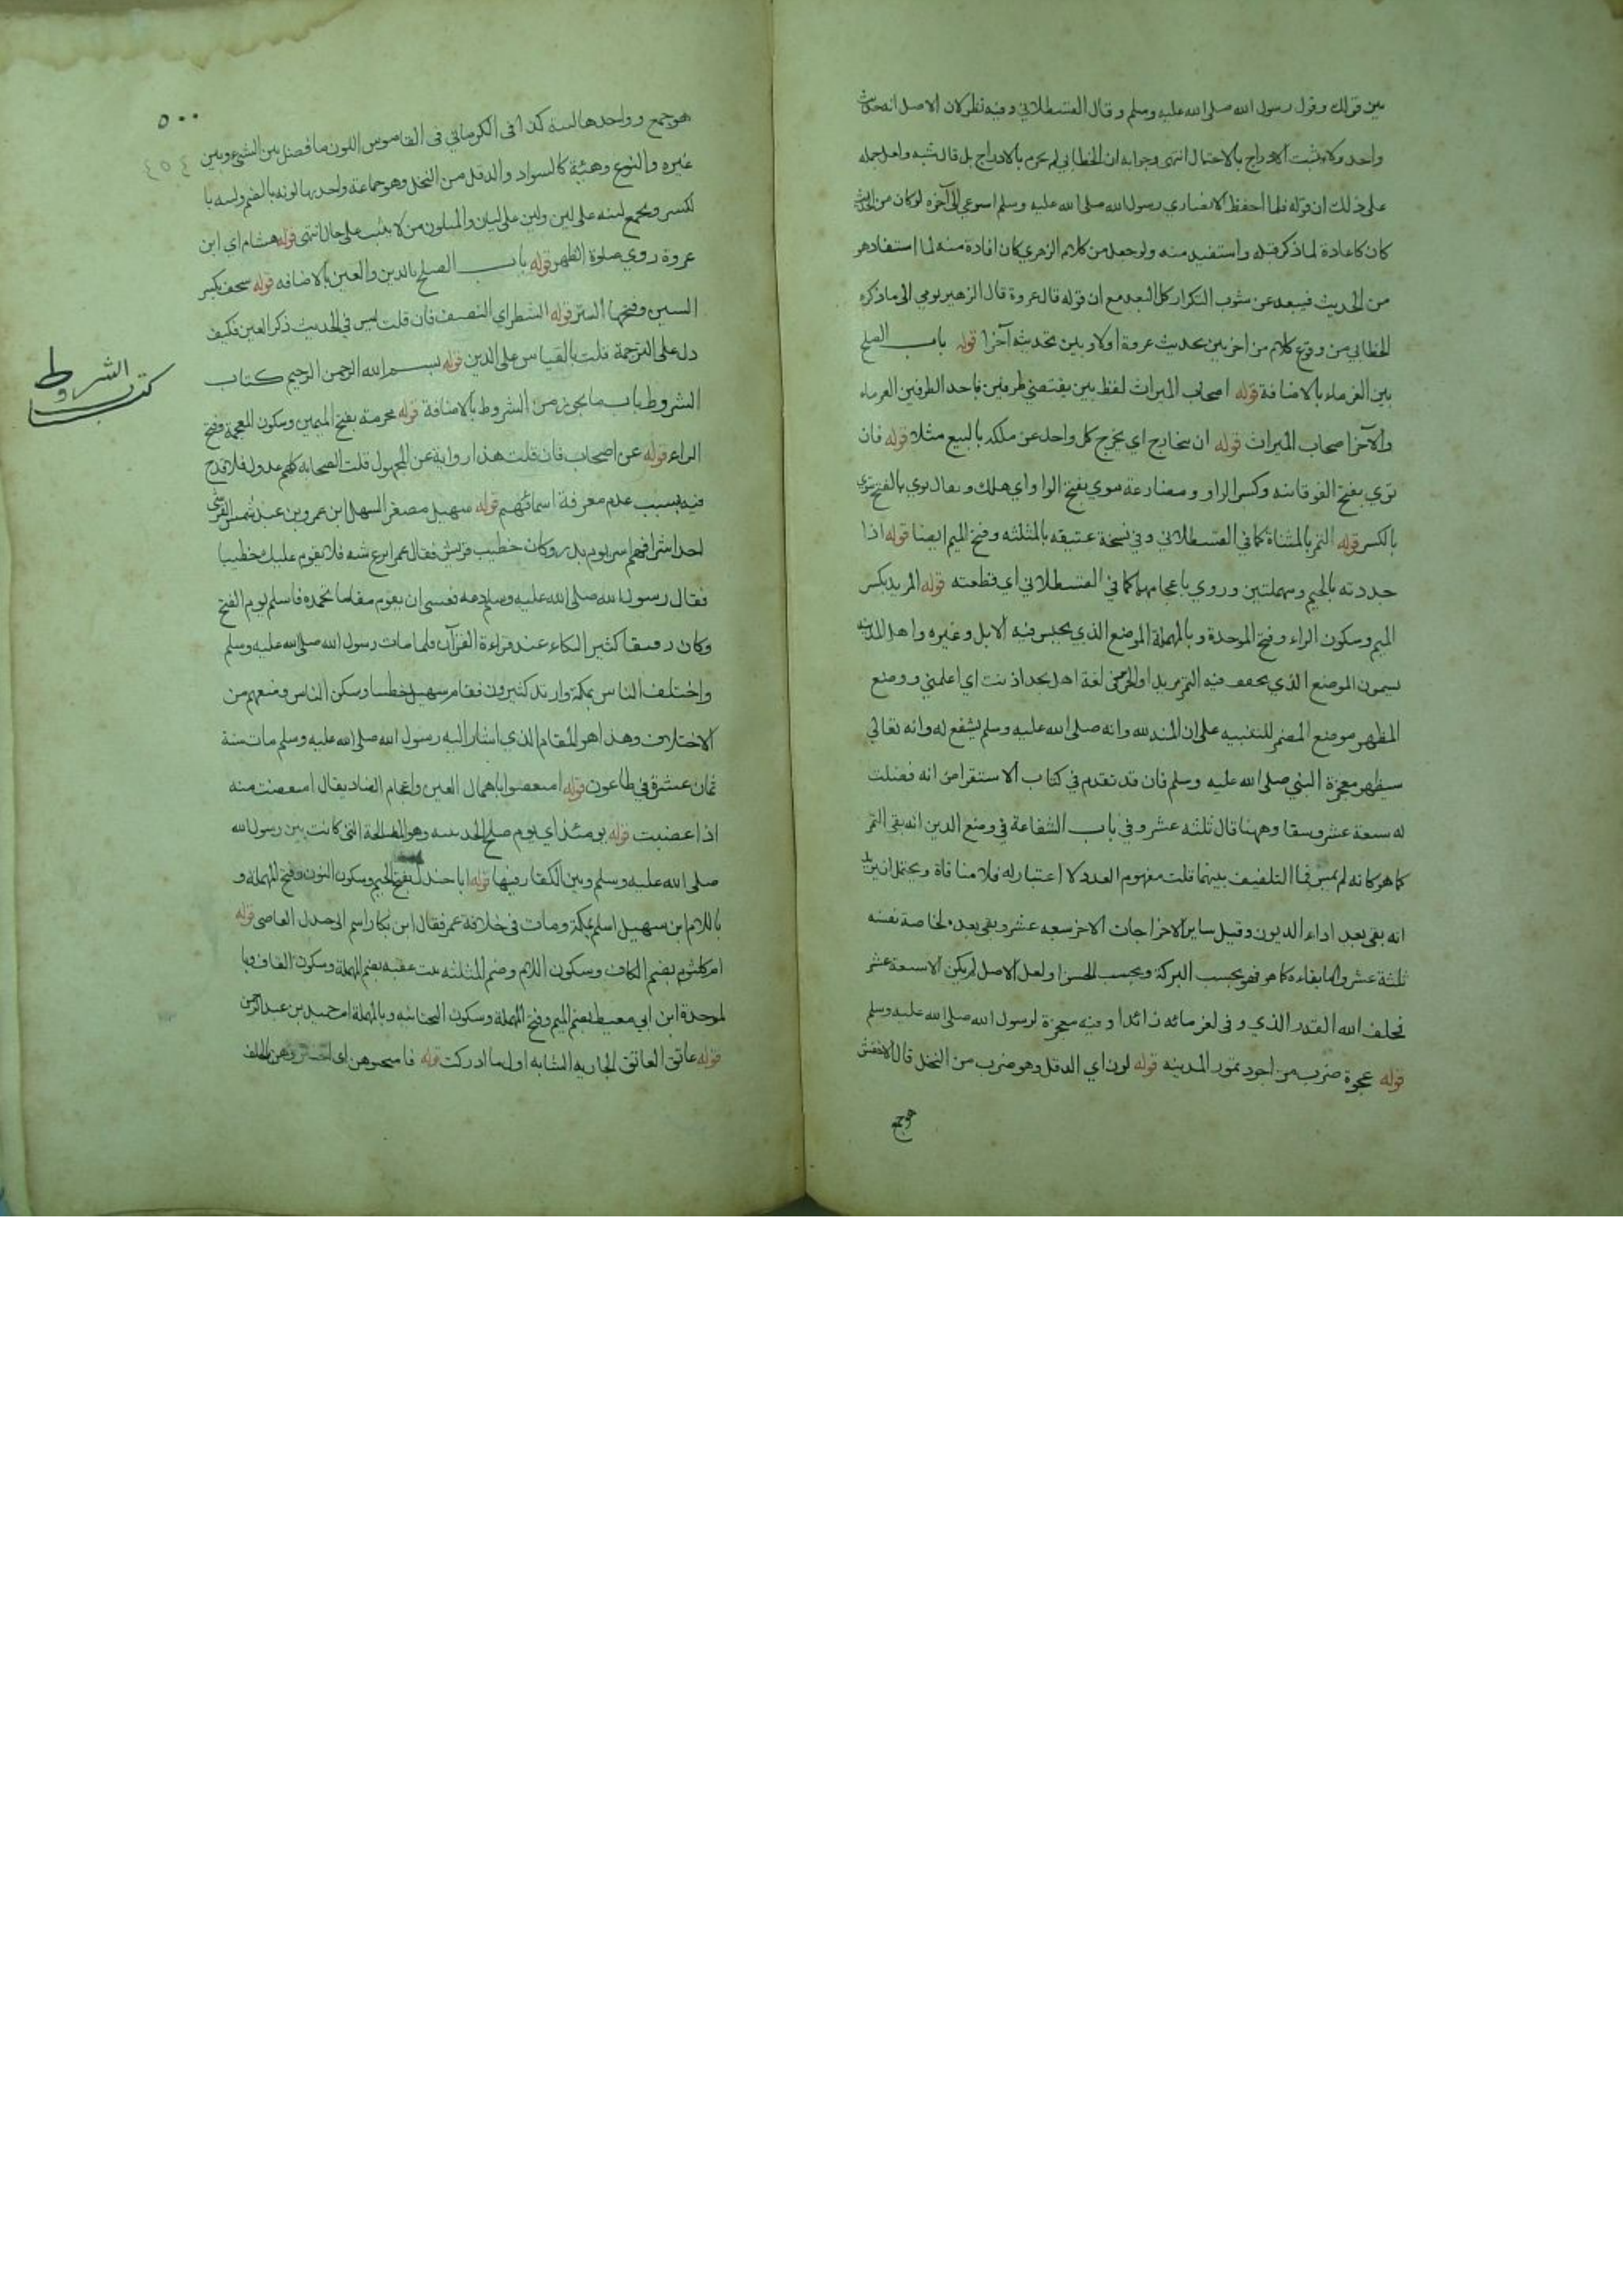 بين قولك وقول رسول الله صلى الله عليه وسلم وقال القسطلاني وفيه نظر لان الاصل انه حديث
واحد ولا يثبت الادراج بالاحتمال انتهى وجوابه ان الخطابي لم يجزم بالادراج بل قال شبه ولعل حمله
على ذلك ان قوله فلما احفظ الانصاري رسول الله صلى الله عليه وسلم استوعي الى آخره لو كان من الحديث
كان كاعادة لما ذكر قبله واستفيد منه ولو جعل من كلام الزهري كان افادة منه لما استفاده
من الحديث فيبعد عن شوب التكرار كل البعد مع ان قوله قال عروة قال الزهير يومي الى ما ذكره
الخطابي من وقوع كلام من اخر بين حديث عروة اولا وبين تحديثه آخرا قوله باب الصلح
بين الغرماء بالاضافة قوله اصحاب الميراث لفظ بين يقتضي طرفين فاحد الطرفين الغرماء
والآخر اصحاب الميراث قوله ان يتخارج اي يخرج كل واحد عن ملكه بالبيع مثلا قوله فان
توي بفتح الفوقانيه وكسر الواو ومضارعة يتوي بفتح الواو اي هلك ويقال توي بالفتح يتوي
بالكسر قوله التمر بالمثناة كما في القسطلاني وفي نسخة عتيقه بالمثلثه وفتح الميم ايضا قوله اذا
جددته بالجيم ومهملتين وروي باعجامهما كما في القسطلاني اي قطعته قوله المربد بكسر
الميم وسكون الراء وفتح الموحدة وبالمهملة الموضع الذي يحبس فيه الابل وغيره واهل المدينه
يسمون الموضع الذي يجفف فيه التمر مربدا والجرين لغة اهل نجد اذنت اي اعلمني ووضع
المظهر موضع المضمر للتنبيه على ان المنه لله وانه صلى الله عليه وسلم يشفع له وانه تعالى
سيظهر معجزة النبي صلى الله عليه وسلم فان قد تقدم في كتاب الاستقراض انه فضلت
له سبعة عشر وسقا وههنا قال ثلثه عشر وفي باب الشفاعة في وضع الدين انه بقي التمر
كما هو كانه لم يمس فما التلفيف بينهما قلت مفهوم العدد لا اعتبار له فلا منافاة ويحتمل ان يريد
انه بقي بعد اداء الديون وقيل ساير الاخراجات الاخر سبعه عشر وبقي بعده لخاصة نفسه
ثلثة عشر واما بقاءه كما هو فهو بحسب البركة وبحسب الحس او لعل الاصل لم يكن الا سبعة عشر
فخلف الله القدر الذي وفى لغرمائه زائدا وفيه معجزة لرسول الله صلى الله عليه وسلم
قوله عجوة ضرب من اجود تمور المدينه قوله لون اي الدقل وهو ضرب من النخل قال الاخفش
هو جمع
٥٠٠
٤٥٤
هو جمع وواحدها لينة كذا في الكرماني في القاموس اللون ما فصل بين الشئ وبين
غيره والنوع وهيئة كالسواد والدقل من النخل وهو جماعة واحدتها لونه بالضم ولينه با
لكسر ويجمع لينه على لين ولين على ليان والمتلون من لا يثبت على حال انتهى قوله هشام اي ابن
عروة روي صلوة الظهر قوله باب الصلح بالدين والعين بالاضافه قوله سجف بكسر
السين وفتحها الستر قوله الشطر اي النصف فان قلت ليس في الحديث ذكر العين فكيف
دل على الترجمة قلت بالقياس على الدين قوله بسم الله الرحمن الرحيم كتاب
الشروط باب ما يجوز من الشروط بالاضافة قوله مخرمة بفتح الميمين وسكون المعجمة وفتح
الراء قوله عن اصحاب فان قلت هذا رواية عن المجهول قلت الصحابه كلهم عدول فلا قدح
فيه بسبب عدم معرفة اسمائهم قوله سهيل مصغر السهل ابن عمرو بن عبد شمس القرشي
احد اشرافهم اسر يوم بدر وكان خطيب قريش فقال عمر انزع ثنيته فلا يقوم عليك خطيبا
فقال رسول الله صلى الله عليه وسلم دعه فعسى ان يقوم مقاما تحمده فاسلم يوم الفتح
وكان رقيقا كثير البكاء عند قراءة القرآن فلما مات رسول الله صلى الله عليه وسلم
واختلف الناس بمكة وارتد كثيرون فقام سهيل خطيبا وسكن الناس ومنعهم من
الاختلاف وهذا هو المقام الذي اشار اليه رسول الله صلى الله عليه وسلم مات سنة
ثمان عشرة في طاعون قوله امتعضوا باهمال العين واعجام الضاد يقال امتعضت منه
اذا غضبت قوله يومئذ اي يوم صلح الحديبيه وهو المصالحة التي كانت بين رسول الله
صلى الله عليه وسلم وبين الكفار فيها قوله ابا جندل بفتح الجيم وسكون النون وفتح المهملة و
باللام ابن سهيل اسلم بمكة ومات في خلافة عمر فقال ابن بكار اسم ابي جندل العاصي قوله
ام كلثوم بضم الكاف وسكون اللام وضم المثلثه بنت عقبه بضم المهملة وسكون القاف وبا
لموحدة ابن ابي معيط بضم الميم وفتح المهملة وسكون التحتانيه وبالمهملة ام حميد بن عبد الرحمن
قوله عاتق العاتق الجاريه الشابه اول ما ادركت قوله فامتحنوهن اي اختبروهن بالحلف
كتاب الشروط